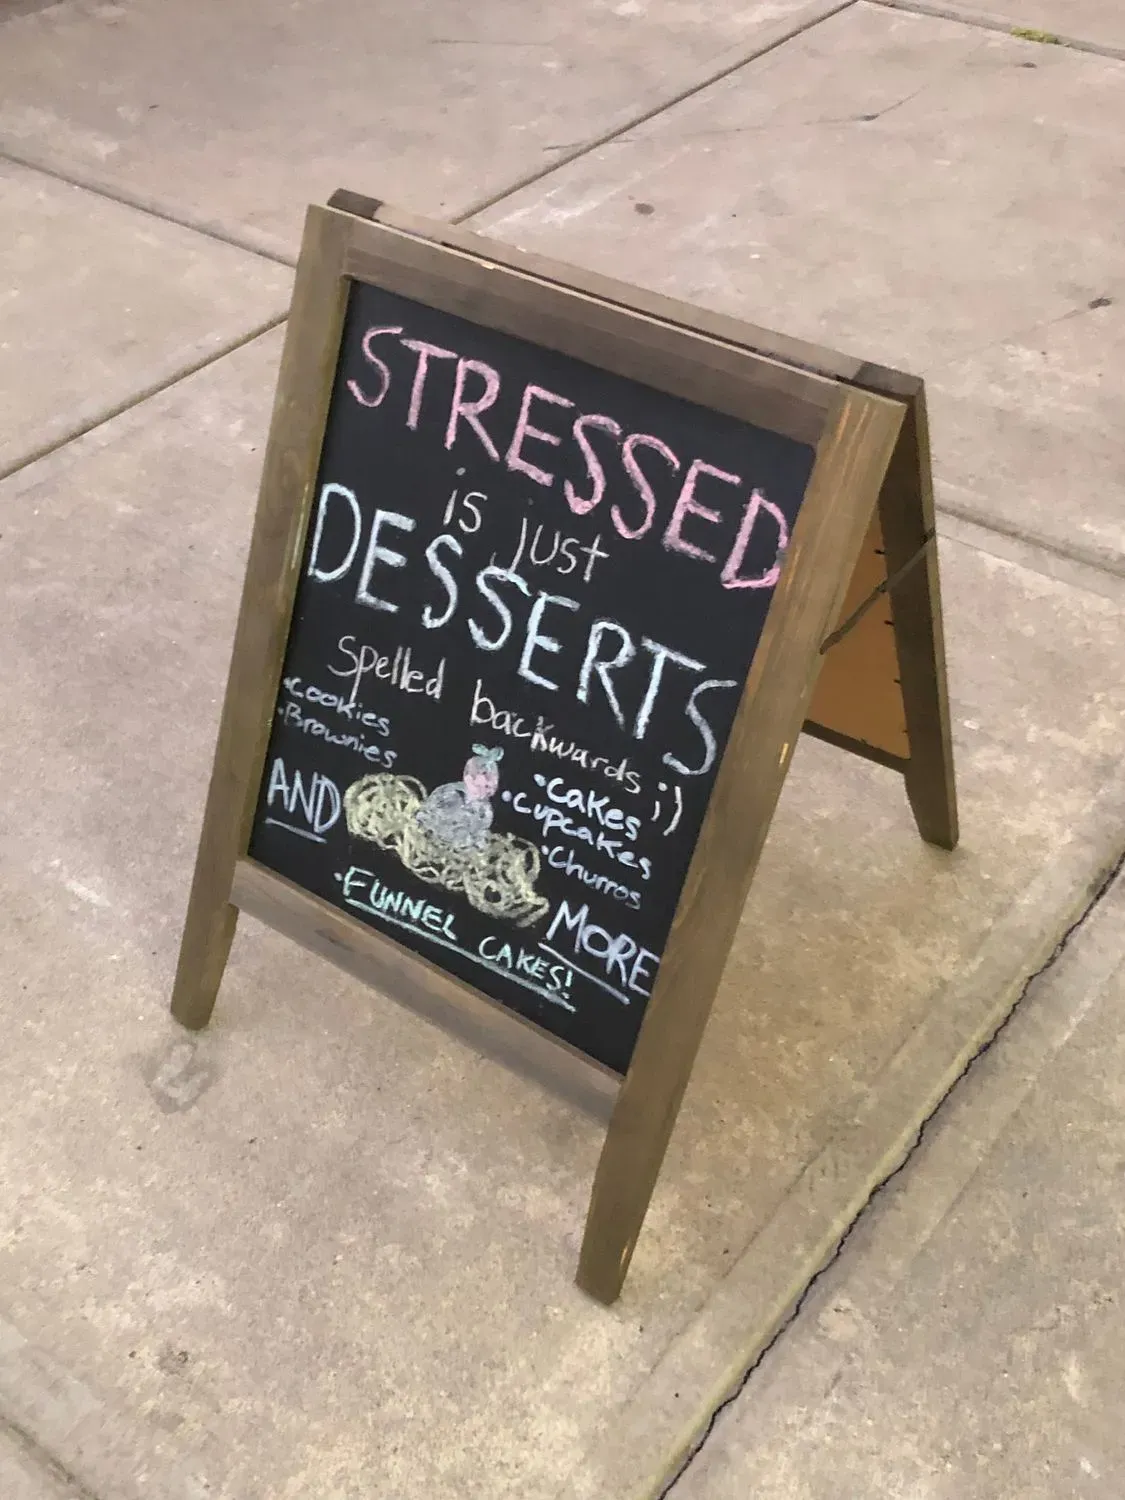 STRESSED
is just
DESSERTS
Spelled backwards ;)
•cookies
•Brownies
•cakes
•cupcakes
•Churros
AND
MORE
•FUNNEL CAKES!